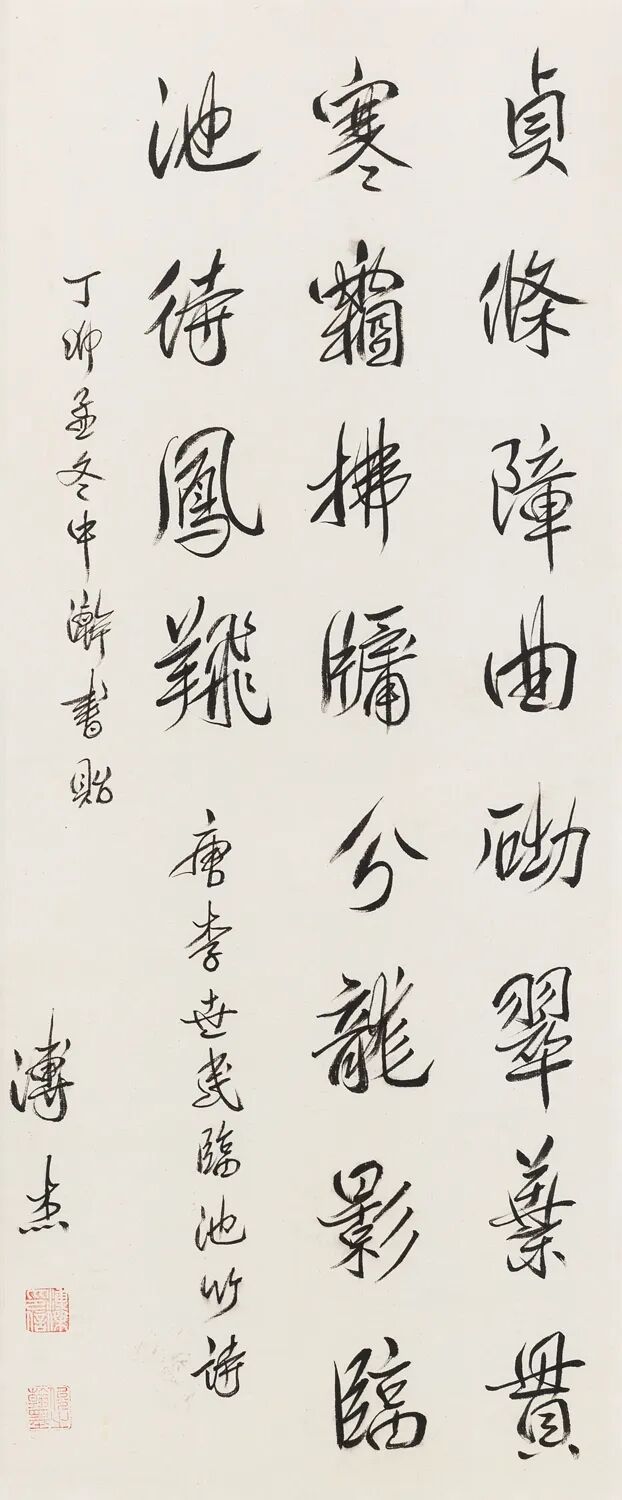 貞條障曲砌翠葉貫
寒霜拂牖分龍影臨
池待鳳翔 唐李世民臨池竹詩
丁卯孟冬中澣書貽
溥杰